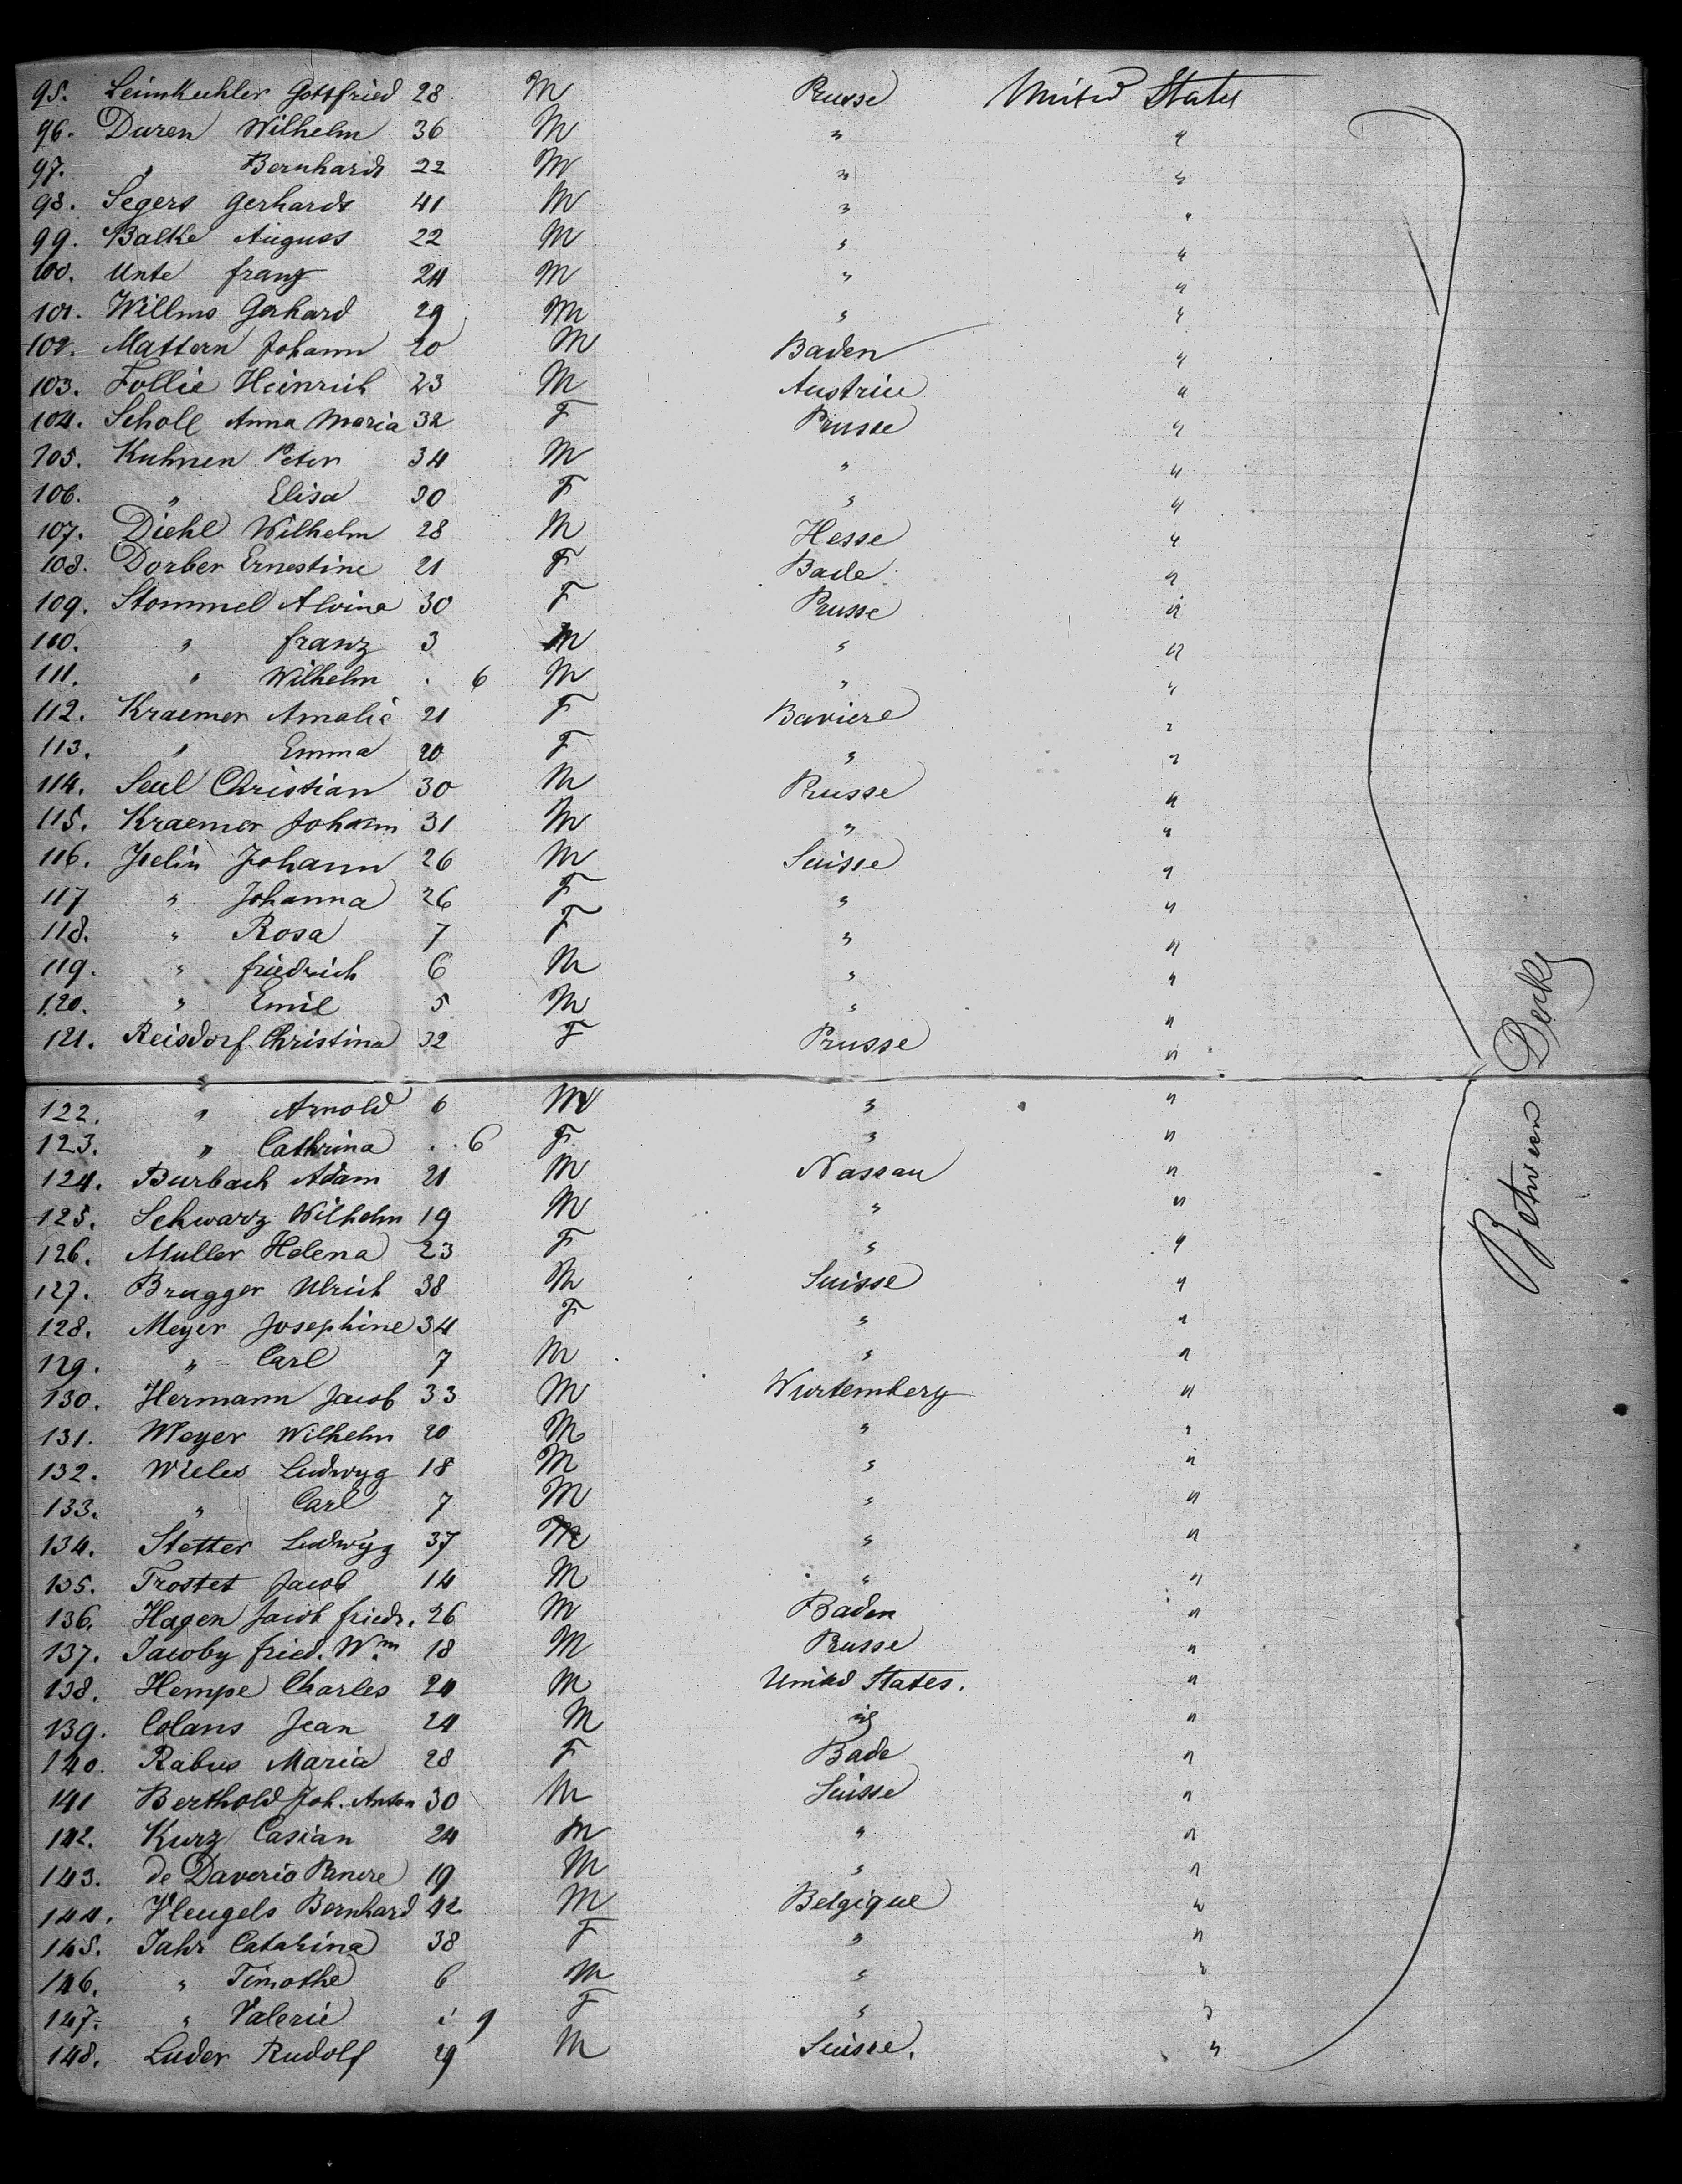 95. Leimkuhler Gottfried 28 M Prusse United States
96. Duren Wilhelm 36 M " "
97. " Bernhardt 22 M " "
98. Segers Gerhardt 41 M " "
99. Balthe August 22 M " "
100. Unte franz 24 M " "
101. Willms Gerhard 29 M " "
102. Mattern Johann 20 M Baden "
103. Follie Heinrich 23 M Austrice "
104. Scholl Anna Maria 32 F Prusse "
105. Kuhnen Peter 34 M " "
106. " Elisa 30 F " "
107. Diehl Wilhelm 28 M Hesse "
108. Dorber Ernestine 21 F Bade "
109. Stommel Alvine 30 F Prusse "
110. " franz 3 M " "
111. " Wilhelm . 6 M " "
112. Kraemer Amalie 21 F Baviere "
113. " Emma 20 F " "
114. Seul Christian 30 M Prusse "
115. Kraemer Johann 31 M " "
116. Iselin Johann 26 M Suisse "
117 " Johanna 26 F " "
118. " Rosa 7 F " "
119. " friedrich 6 M " "
120. " Emil 5 M " "
121. Reisdorf Christina 32 F Prusse "
122. " Arnold 6 M " "
123. " Cathrina . . 6 F " "
124. Burbach Adam 21 M Nassau "
125. Schwarz Wilhelm 19 M " "
126. Muller Helena 23 F " "
127. Brugger Ulrich 38 M Suisse "
128. Meyer Josephine 34 F " "
129. " Carl 7 M " "
130. Hermann Jacob 33 M Wurtemberg "
131. Meyer Wilhelm 20 M " "
132. Wieles Ludwyg 18 M " "
133. " Carl 7 M " "
134. Stetter Ludwyg 37 M " "
135. Trostet Jacob 14 M " "
136. Hagen Jacob friedr. 26 M Baden "
137. Jacoby fried. Wm. 18 M Prusse "
138. Hempe Charles 24 M United States. "
139. Colans Jean 24 M id "
140. Rabus Maria 28 F Bade "
141 Berthold Joh. Anton 30 M Suisse "
142. Kurz Casian 24 M " "
143. de Daverio 19 M " "
144. Vleugels Bernhard 42 M Belgique "
145. Jahr Catarina 38 F " "
146. " Timothe 6 M " "
147. " Valerie . 9 F " "
148. Luder Rudolf 29 M Suisse. "
Between Decks